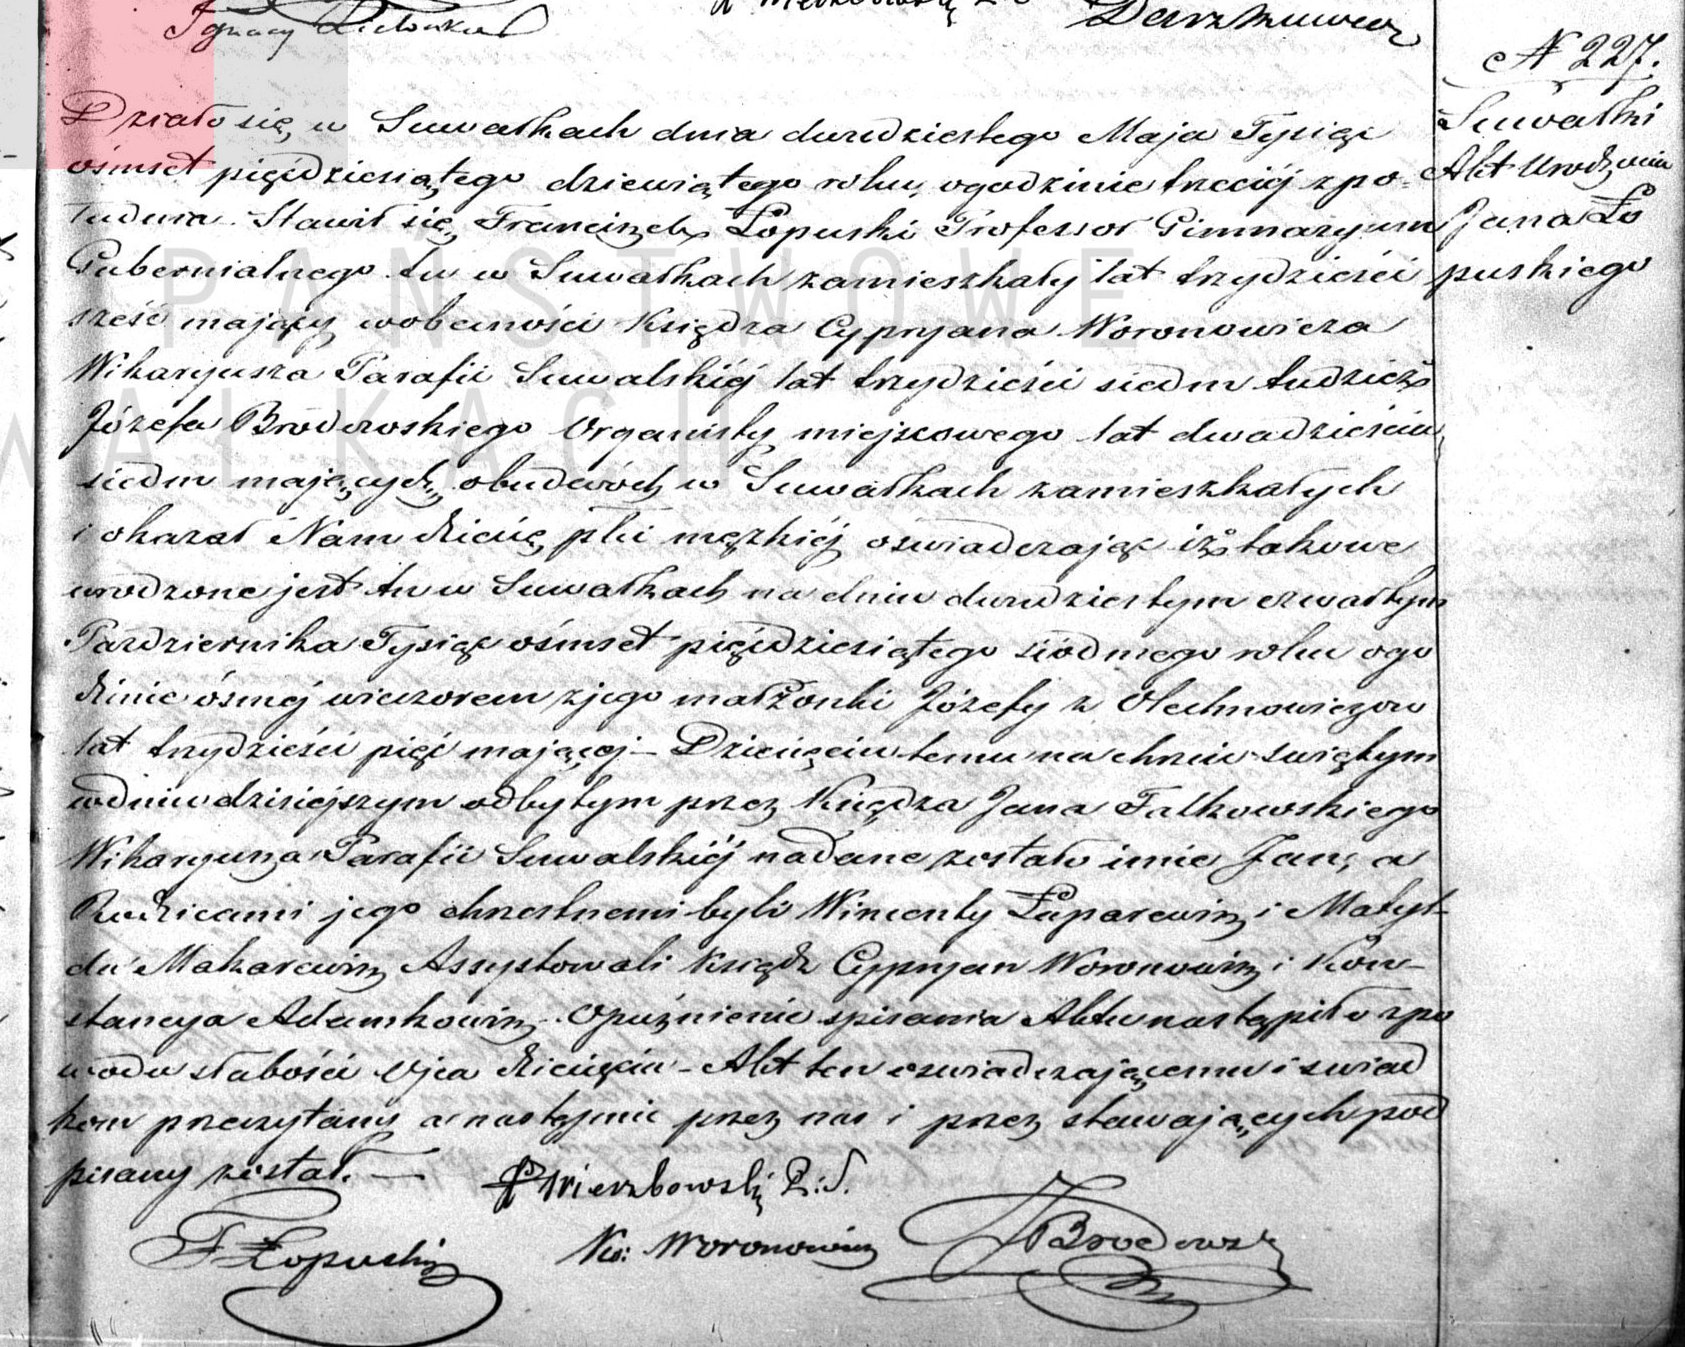 Ignacy
N 227.
Suwałki
Akt Urodzenia
Jana Ło
puskiego
Działo się w Suwałkach dnia dwudziestego Maja Tysiąc
ośmset pięćdziesiątego dziewiątego roku, ogodzinie trzeciéj zpo=
łudnia. Stawił się Franciszek Łopuski Professor Gimnazyum
Gubernialnego tu w Suwałkach zamieszkały lat trzydzieści
sześć mający wobecności Księdza Cypryana Woronowicza
Wikaryusza Parafii Suwalskiéj lat trzydzieści siedm tudzież
Józefa Brodowskiego Organisty miejscowego lat dwadzieścia
siedm mających, obudwóch w Suwałkach zamieszkałych
i okazał Nam dziecię płci męzkiéj oświadczając iż takowe
urodzone jest tu w Suwałkach na dniu dwudziestym czwartym
Pazdziernika Tysiąc ośmset pięćdziesiątego siódmego roku ogo
dzinie ósmej wieczorem zjego małżonki Józefy z Olechnowiczow
lat trzydzieści pięć mającej – Dziecięciu temu na chrzcie świętym
wdniu dzisiejszym odbytym przez Księdza Jana Falkowskiego
Wikaryusza Parafii Suwalskiéj nadane zostało imie Jan, a
Rodzicami jego chrzestnemi byli Wincenty Łaparewicz i Matyl-
da Makarewicz Assystowali Ksiądz Cypryan Woronowicz i Kon-
stancya Adamkowicz. Opóźnienie spisania Aktu nastąpiło zpo
wodu słabości Ojca dziecięcia – Akt ten oswiadczającemu i swiad
kom przeczytany a następnie przez nas i przez stawających pod
pisany został. —
Wierzbowski P.: S.
F Łopuski
Ks: Woronowicz
J Brodowski
PAŃSTWOWE
WAŁKACH